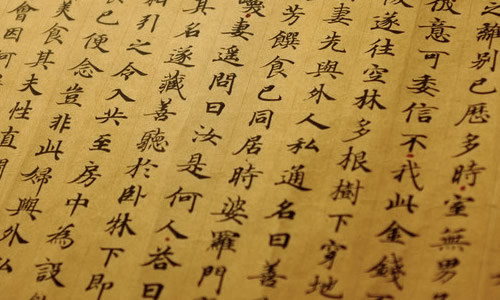 之離別已歷多時室無男
意可委信不我此金錢不
遂往空林多根樹下穿地
妻先與外人私通名曰善
芳饌食已同居時婆羅門
妻遙問曰汝是何人答曰
其名遂藏善聽於臥牀下即
相引之令入共至房中為設
已便念豈非此婦與外私
美食其夫性直
會因何